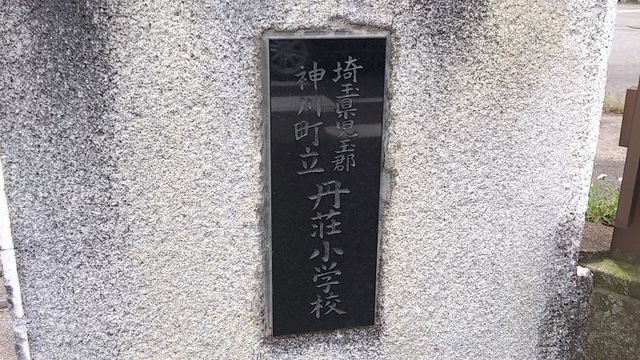 埼玉県児玉郡
神川町立
丹荘小学校